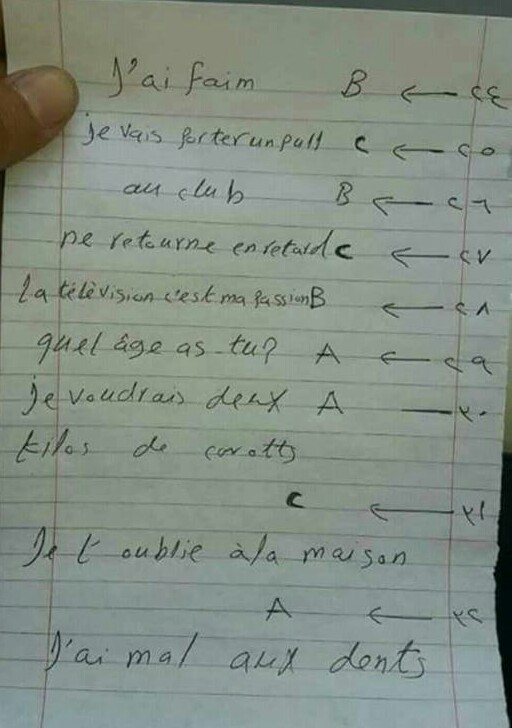 J'ai faim B ← ٢٤
je vais porter un pull C ← ٢٥
au club B ← ٢٦
ne retourne en retard C ← ٢٧
La télévision c'est ma passion B ← ٢٨
quel âge as-tu? A ← ٢٩
je voudrais deux A — ٣٠
kilos de carotts
C ← ٣١
Je t oublie à la maison
A ← ٣٢
J'ai mal aux dents